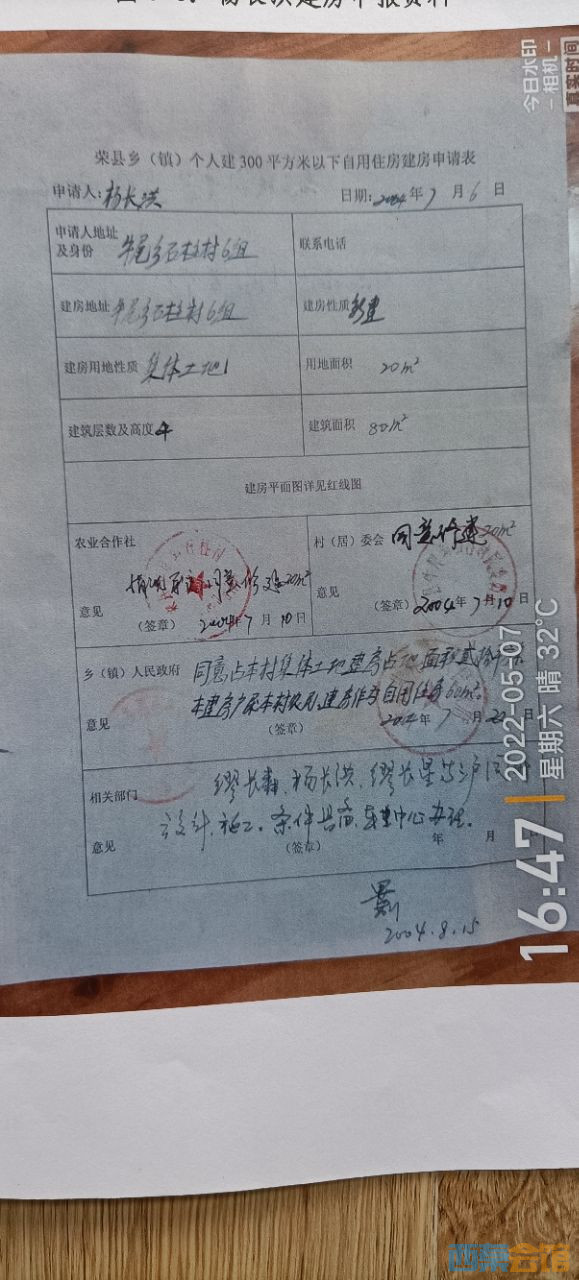 荣县乡（镇）个人建300平方米以下自用住房建房申请表
申请人：杨长洪 日期：2004年7月6日
申请人地址及身份 牛尾乡石柱村6组 联系电话
建房地址 牛尾乡石柱村6组 建房性质 新建
建房用地性质 集体土地 用地面积 20m²
建筑层数及高度 4 建筑面积 80m²
建房平面图详见红线图
农业合作社 村（居）委会 同意修建20m²
同意修建20m²
意见 意见
（签章） 2004年7月10日 （签章） 2004年7月10日
乡（镇）人民政府 同意占本村集体土地建房占地面积贰拾
本建房户系本村农户，建房作为自用住房
意见 （签章） 2004年7月22日
相关部门 缪长森、杨长洪、缪长星等三户
设计、施工。条件具备，中心办理。
意见 （签章） 年 月
2004.8.15
今日水印
-相机-
真实时间
16:47
2022-05-07
星期六 晴 32℃